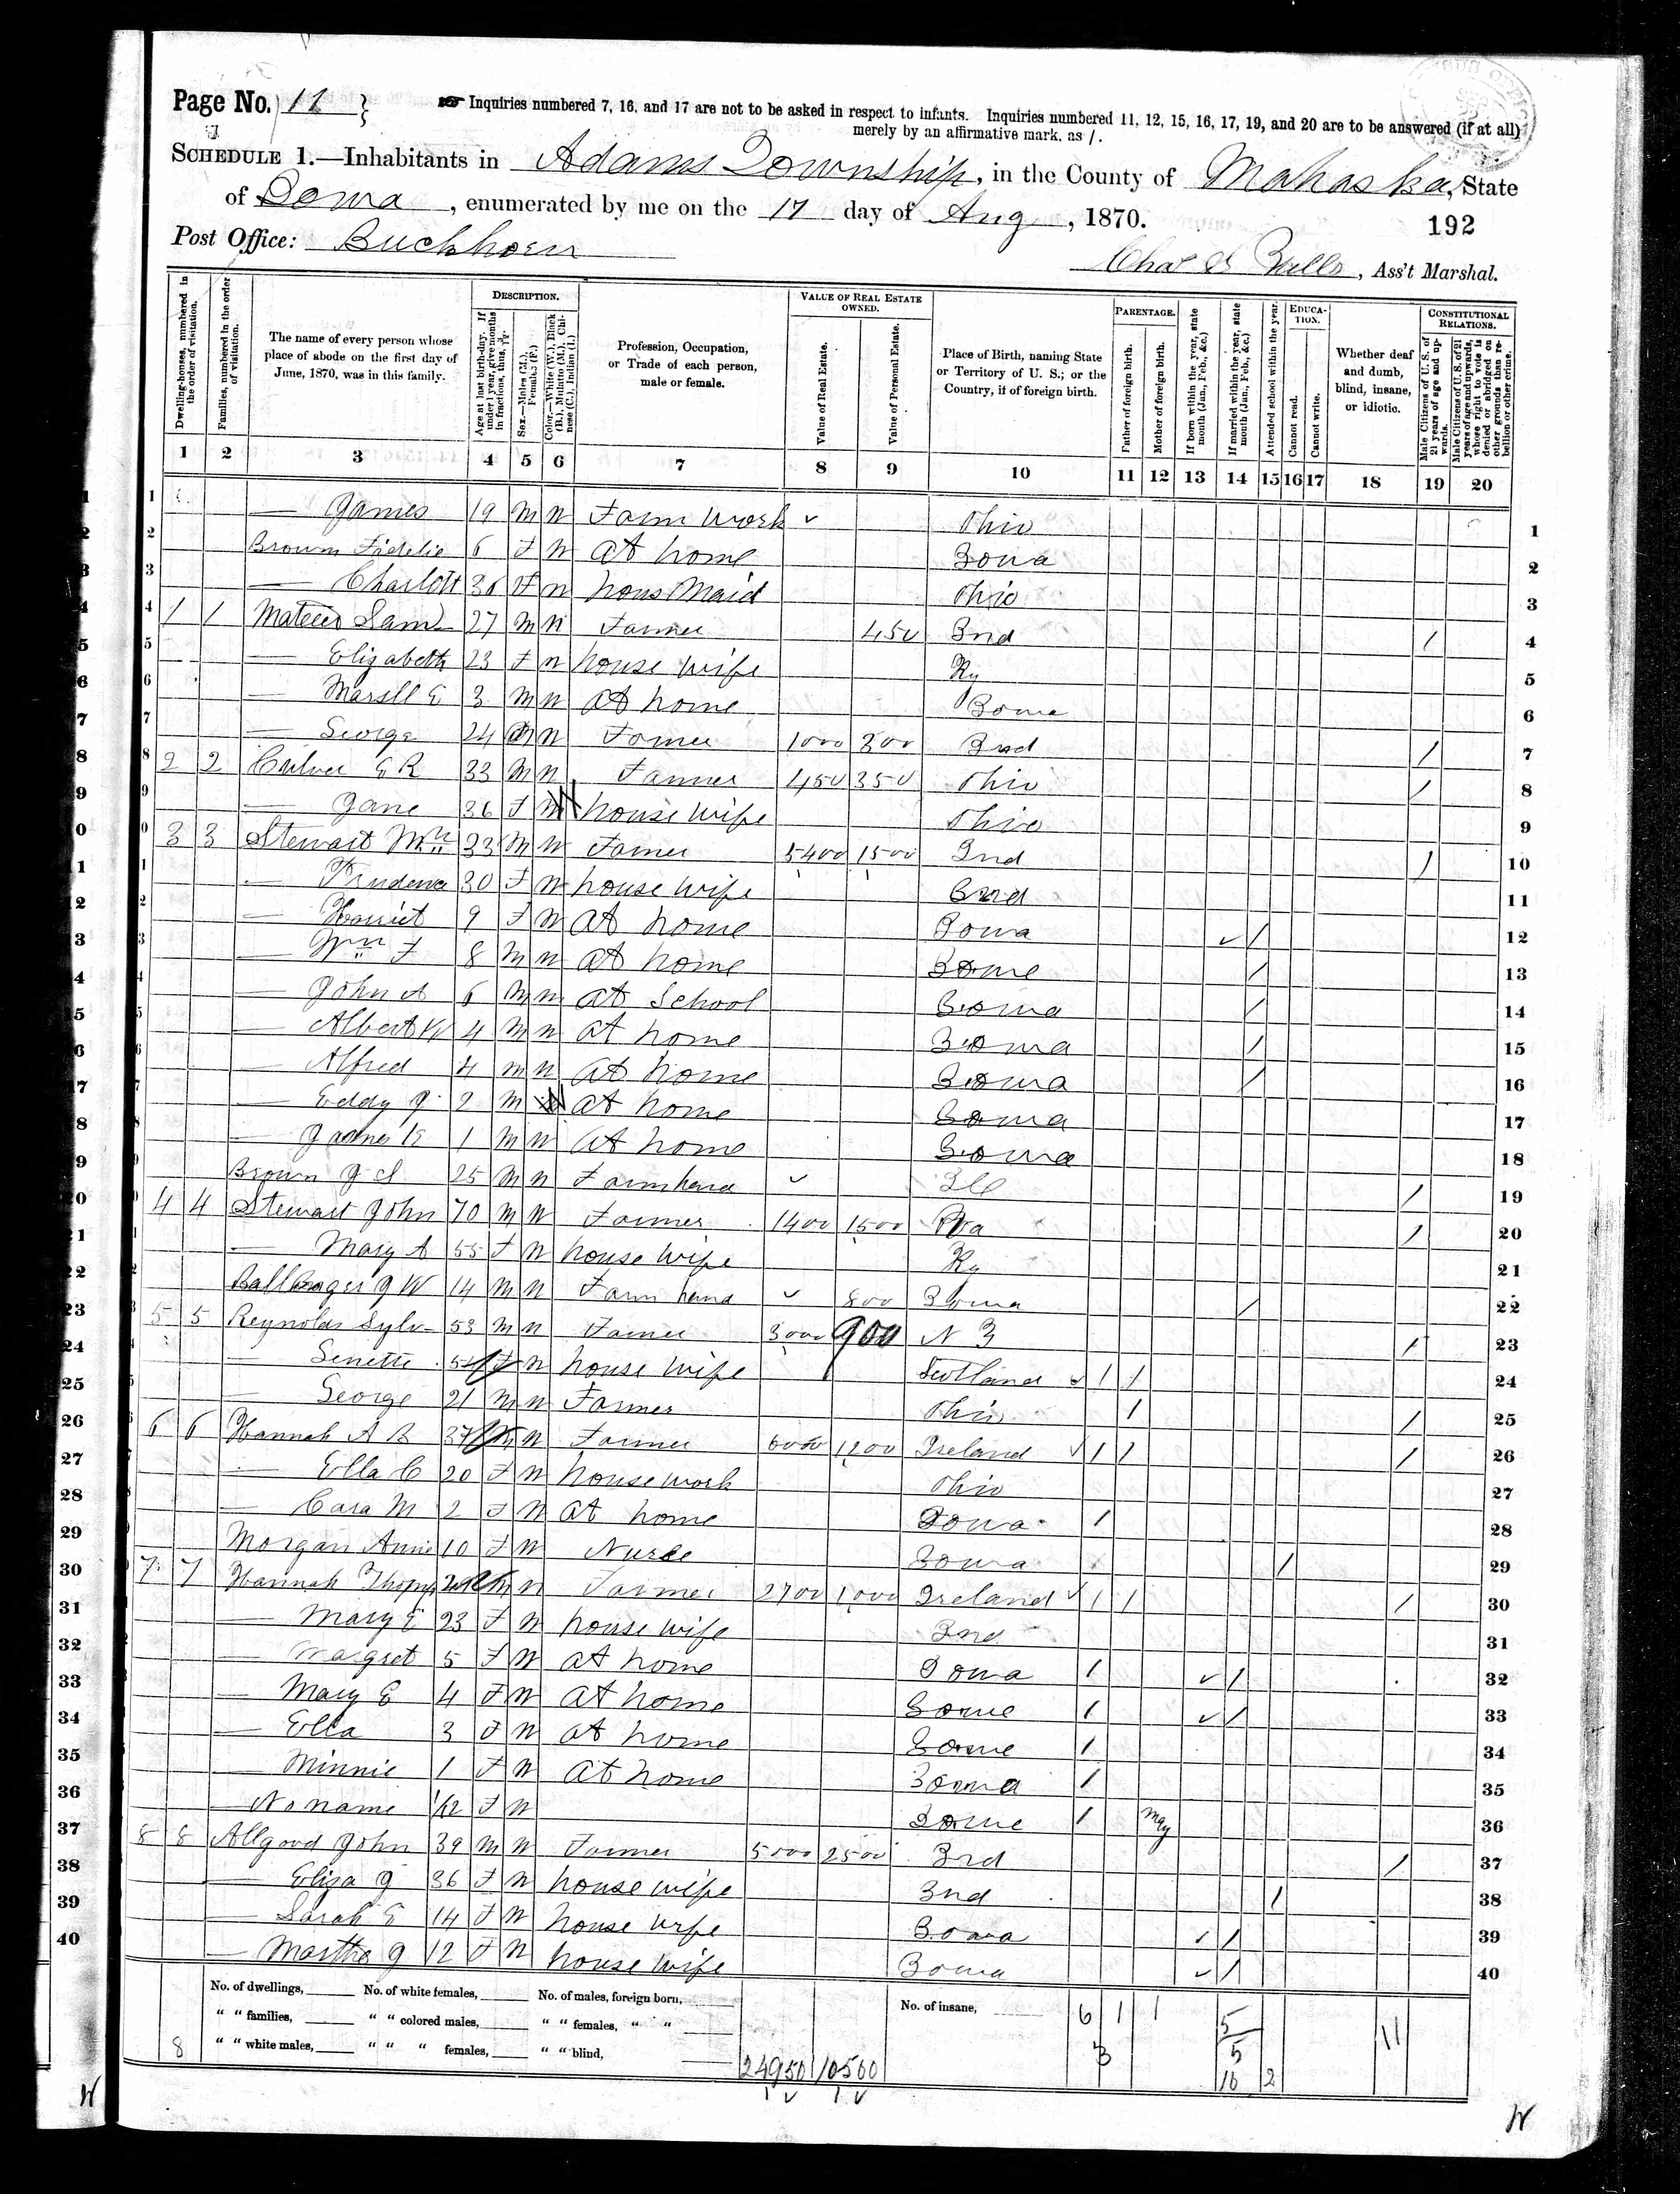 Page No. 11 } Inquiries numbered 7, 16, and 17 are not to be asked in respect to infants. Inquiries numbered 11, 12, 15, 16, 17, 19, and 20 are to be answered (if at all)
merely by an affirmative mark, as /.
SCHEDULE 1.—Inhabitants in Adams Township, in the County of Mahaska, State
of Iowa, enumerated by me on the 17 day of Aug, 1870.
192
Post Office: Buckhorn
Ass't Marshal.
Dwelling-houses, numbered in the order of visitation.
Families, numbered in the order of visitation.
The name of every person whose place of abode on the first day of June, 1870, was in this family.
DESCRIPTION.
Age at last birth-day. If under 1 year, give months in fractions, thus,
Sex.—Males (M.), Females (F.)
Color.—White (W.), Black (B.), Mulatto (M.), Chinese (C.), Indian (I.)
Profession, Occupation, or Trade of each person, male or female.
VALUE OF REAL ESTATE OWNED.
Value of Real Estate.
Value of Personal Estate.
Place of Birth, naming State or Territory of U. S.; or the Country, if of foreign birth.
PARENTAGE.
Father of foreign birth.
Mother of foreign birth.
If born within the year, state month (Jan., Feb., &c.)
If married within the year, state month (Jan., Feb., &c.)
Attended school within the year.
EDUCATION.
Cannot read.
Cannot write.
Whether deaf and dumb, blind, insane, or idiotic.
CONSTITUTIONAL RELATIONS.
Male Citizens of U. S. of 21 years of age and upwards.
Male Citizens of U. S. of 21 years of age and upwards, whose right to vote is denied or abridged on other grounds than rebellion or other crime.
1 2 3 4 5 6 7 8 9 10 11 12 13 14 15 16 17 18 19 20
1 — James 19 M W Farm Work ✓ Ohio 1
2 Brown Fidelie 6 F W At home Iowa 2
3 — Charlott 36 F W hous Maid Ohio 3
4 1 1 Sam 27 M W Farmer 450 Ind / 4
5 — Elizabeth 23 F W house wife Ky 5
6 — E 3 M W At home Iowa 6
7 — George 24 M W Farmer 1000 300 Ind / 7
8 2 2 E R 33 M W Farmer 450 350 Ohio / 8
9 — Jane 36 F W house wife Ohio 9
10 3 3 Stewart Wm 33 M W Farmer 5400 1500 Ind / 10
11 — Prudence 30 F W house wife Ind 11
12 — Harriet 9 F W At home Iowa ✓ / 12
13 — Wm F 8 M W At home Iowa / 13
14 — John A 6 M W At School Iowa / 14
15 — Albert W 4 M W At home Iowa / 15
16 — Alfred 4 M W At home Iowa / 16
17 — Eddy J 2 M W At home Iowa 17
18 — James K 1 M W At home Iowa 18
19 Brown J 25 M W Farmhand ✓ Ill / 19
20 4 4 Stewart John 70 M W Farmer 1400 1500 Va / 20
21 — Mary A 55 F W house wife Ky 21
22 J W 14 M W Farm hand ✓ 800 Iowa / 22
23 5 5 Reynolds Sylv 53 M W Farmer 3000 900 N J / 23
24 — Senette F W house wife Scotland ✓ / / 24
25 — George 21 M W Farmer Ohio / / 25
26 6 6 Hannah A B 37 M W Farmer 6000 1200 Ireland ✓ / / / 26
27 — Ella C 20 F W house work Ohio 27
28 — Cara M 2 F W At home Iowa / 28
29 Morgan Annie 10 F W Nurse Iowa / 29
30 7 7 Hannah M W Farmer 2700 1000 Ireland ✓ / / / 30
31 — Mary E 23 F W house wife Ind 31
32 — Margret 5 F W At home Iowa / ✓ / 32
33 — Mary E 4 F W At home Iowa / ✓ / 33
34 — Ella 3 F W At home Iowa / 34
35 — Minnie 1 F W At home Iowa / 35
36 — No name 1/12 F W Iowa / May 36
37 8 8 Allgood John 39 M W Farmer 5000 2500 Ind / 37
38 — Eliza J 36 F W house wife Ind / 38
39 — Sarah E 14 F W house wife Iowa / / 39
40 — Martha J 12 F W house wife Iowa ✓ / 40
No. of dwellings, No. of white females, No. of males, foreign born, No. of insane, 6 1 1 5 11
" " families, " " colored males, " " females, " " 3 5
8 " " white males, " " " females, " " blind, 24950 10500 10 2